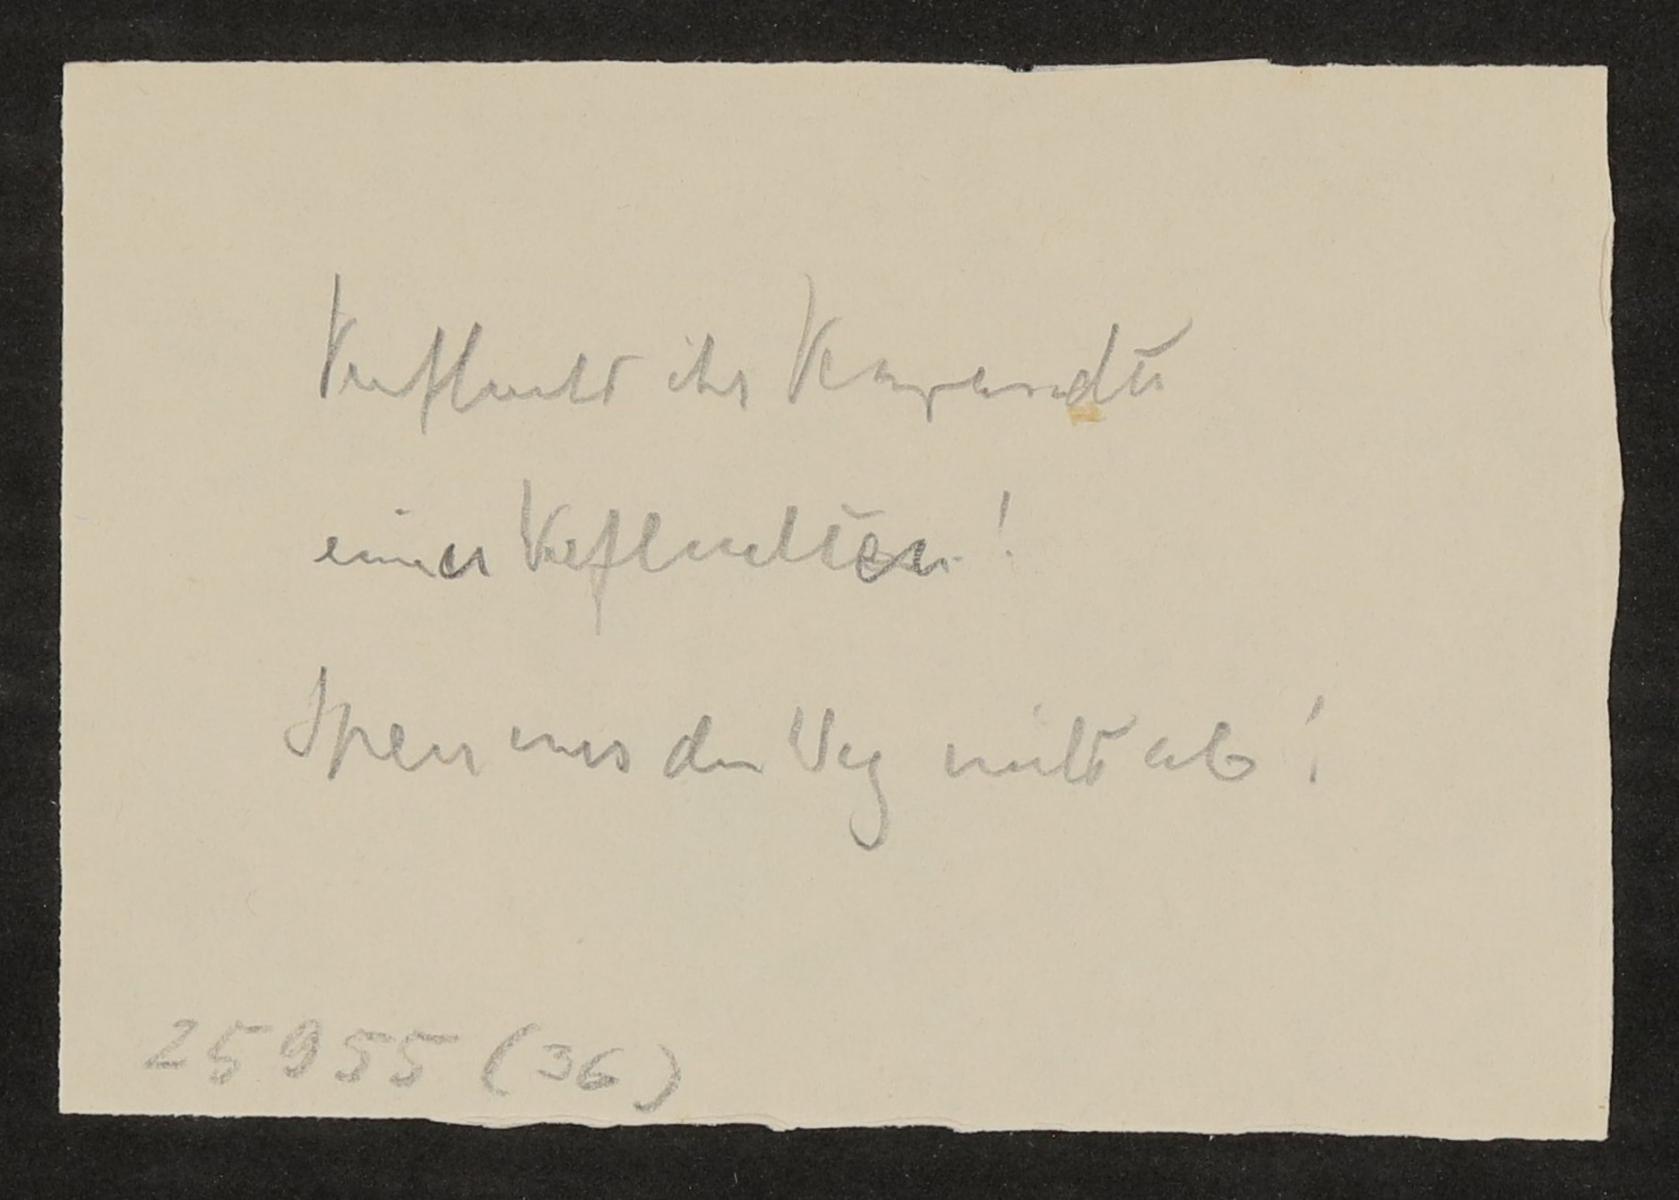 Verflucht ihr Verwandte
einer Verfluchten!
Sperr uns den Weg nicht ab!
25955 (36)